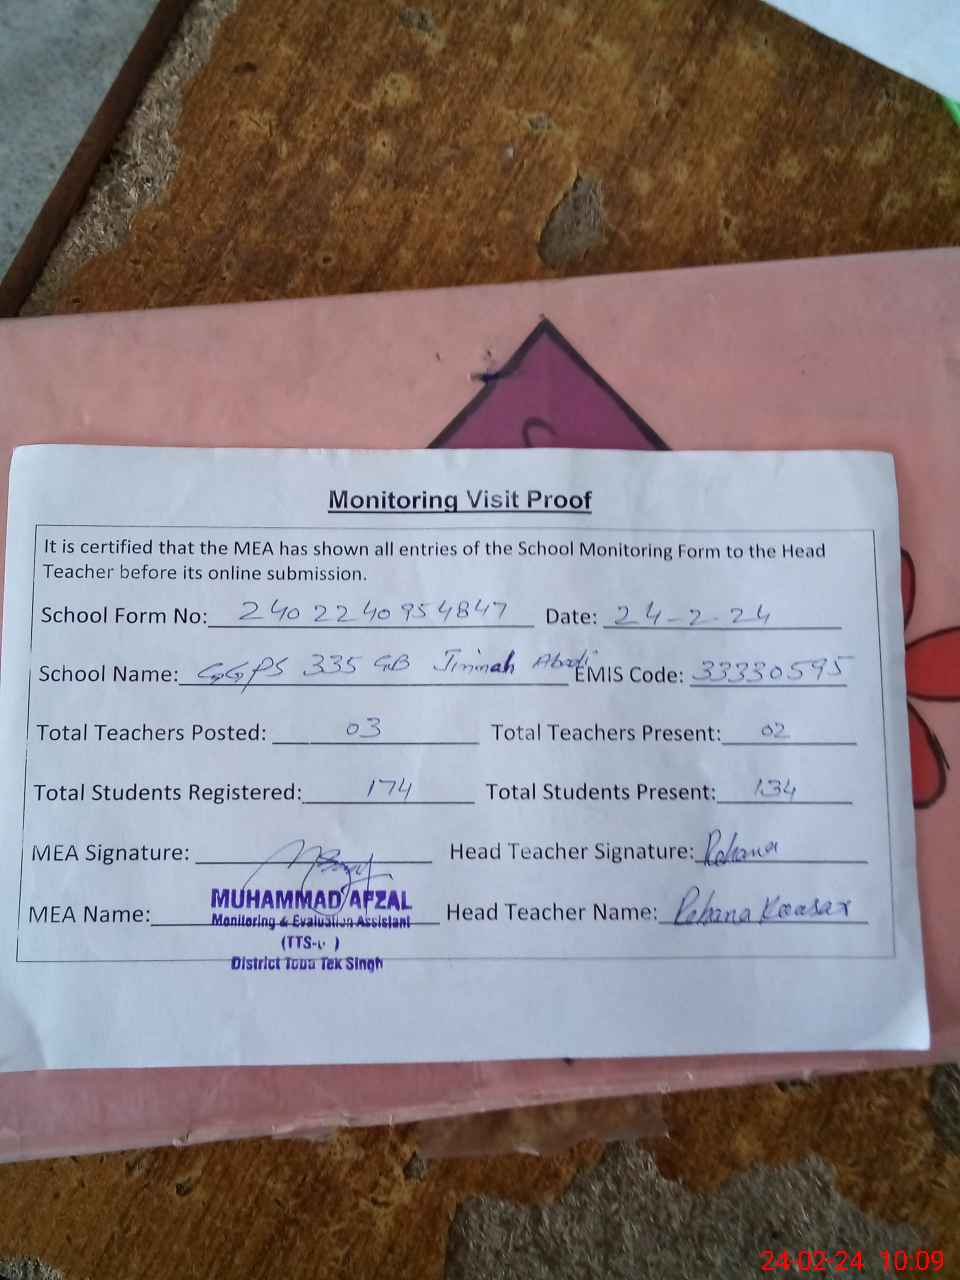 Monitoring Visit Proof
It is certified that the MEA has shown all entries of the School Monitoring Form to the Head
Teacher before its online submission.
School Form No: 240 22 40 954847 Date: 24-2-24
School Name: GGPS 335 GB Jinnah Abadi EMIS Code: 33330595
Total Teachers Posted: 03 Total Teachers Present: 02
Total Students Registered: 174 Total Students Present: 134
MEA Signature: Head Teacher Signature: Rehana
MEA Name: MUHAMMAD AFZAL Head Teacher Name: Rehana Koasar
Monitoring & Evaluation Assistant
District Toba Tek Singh
24-02-24 10:09